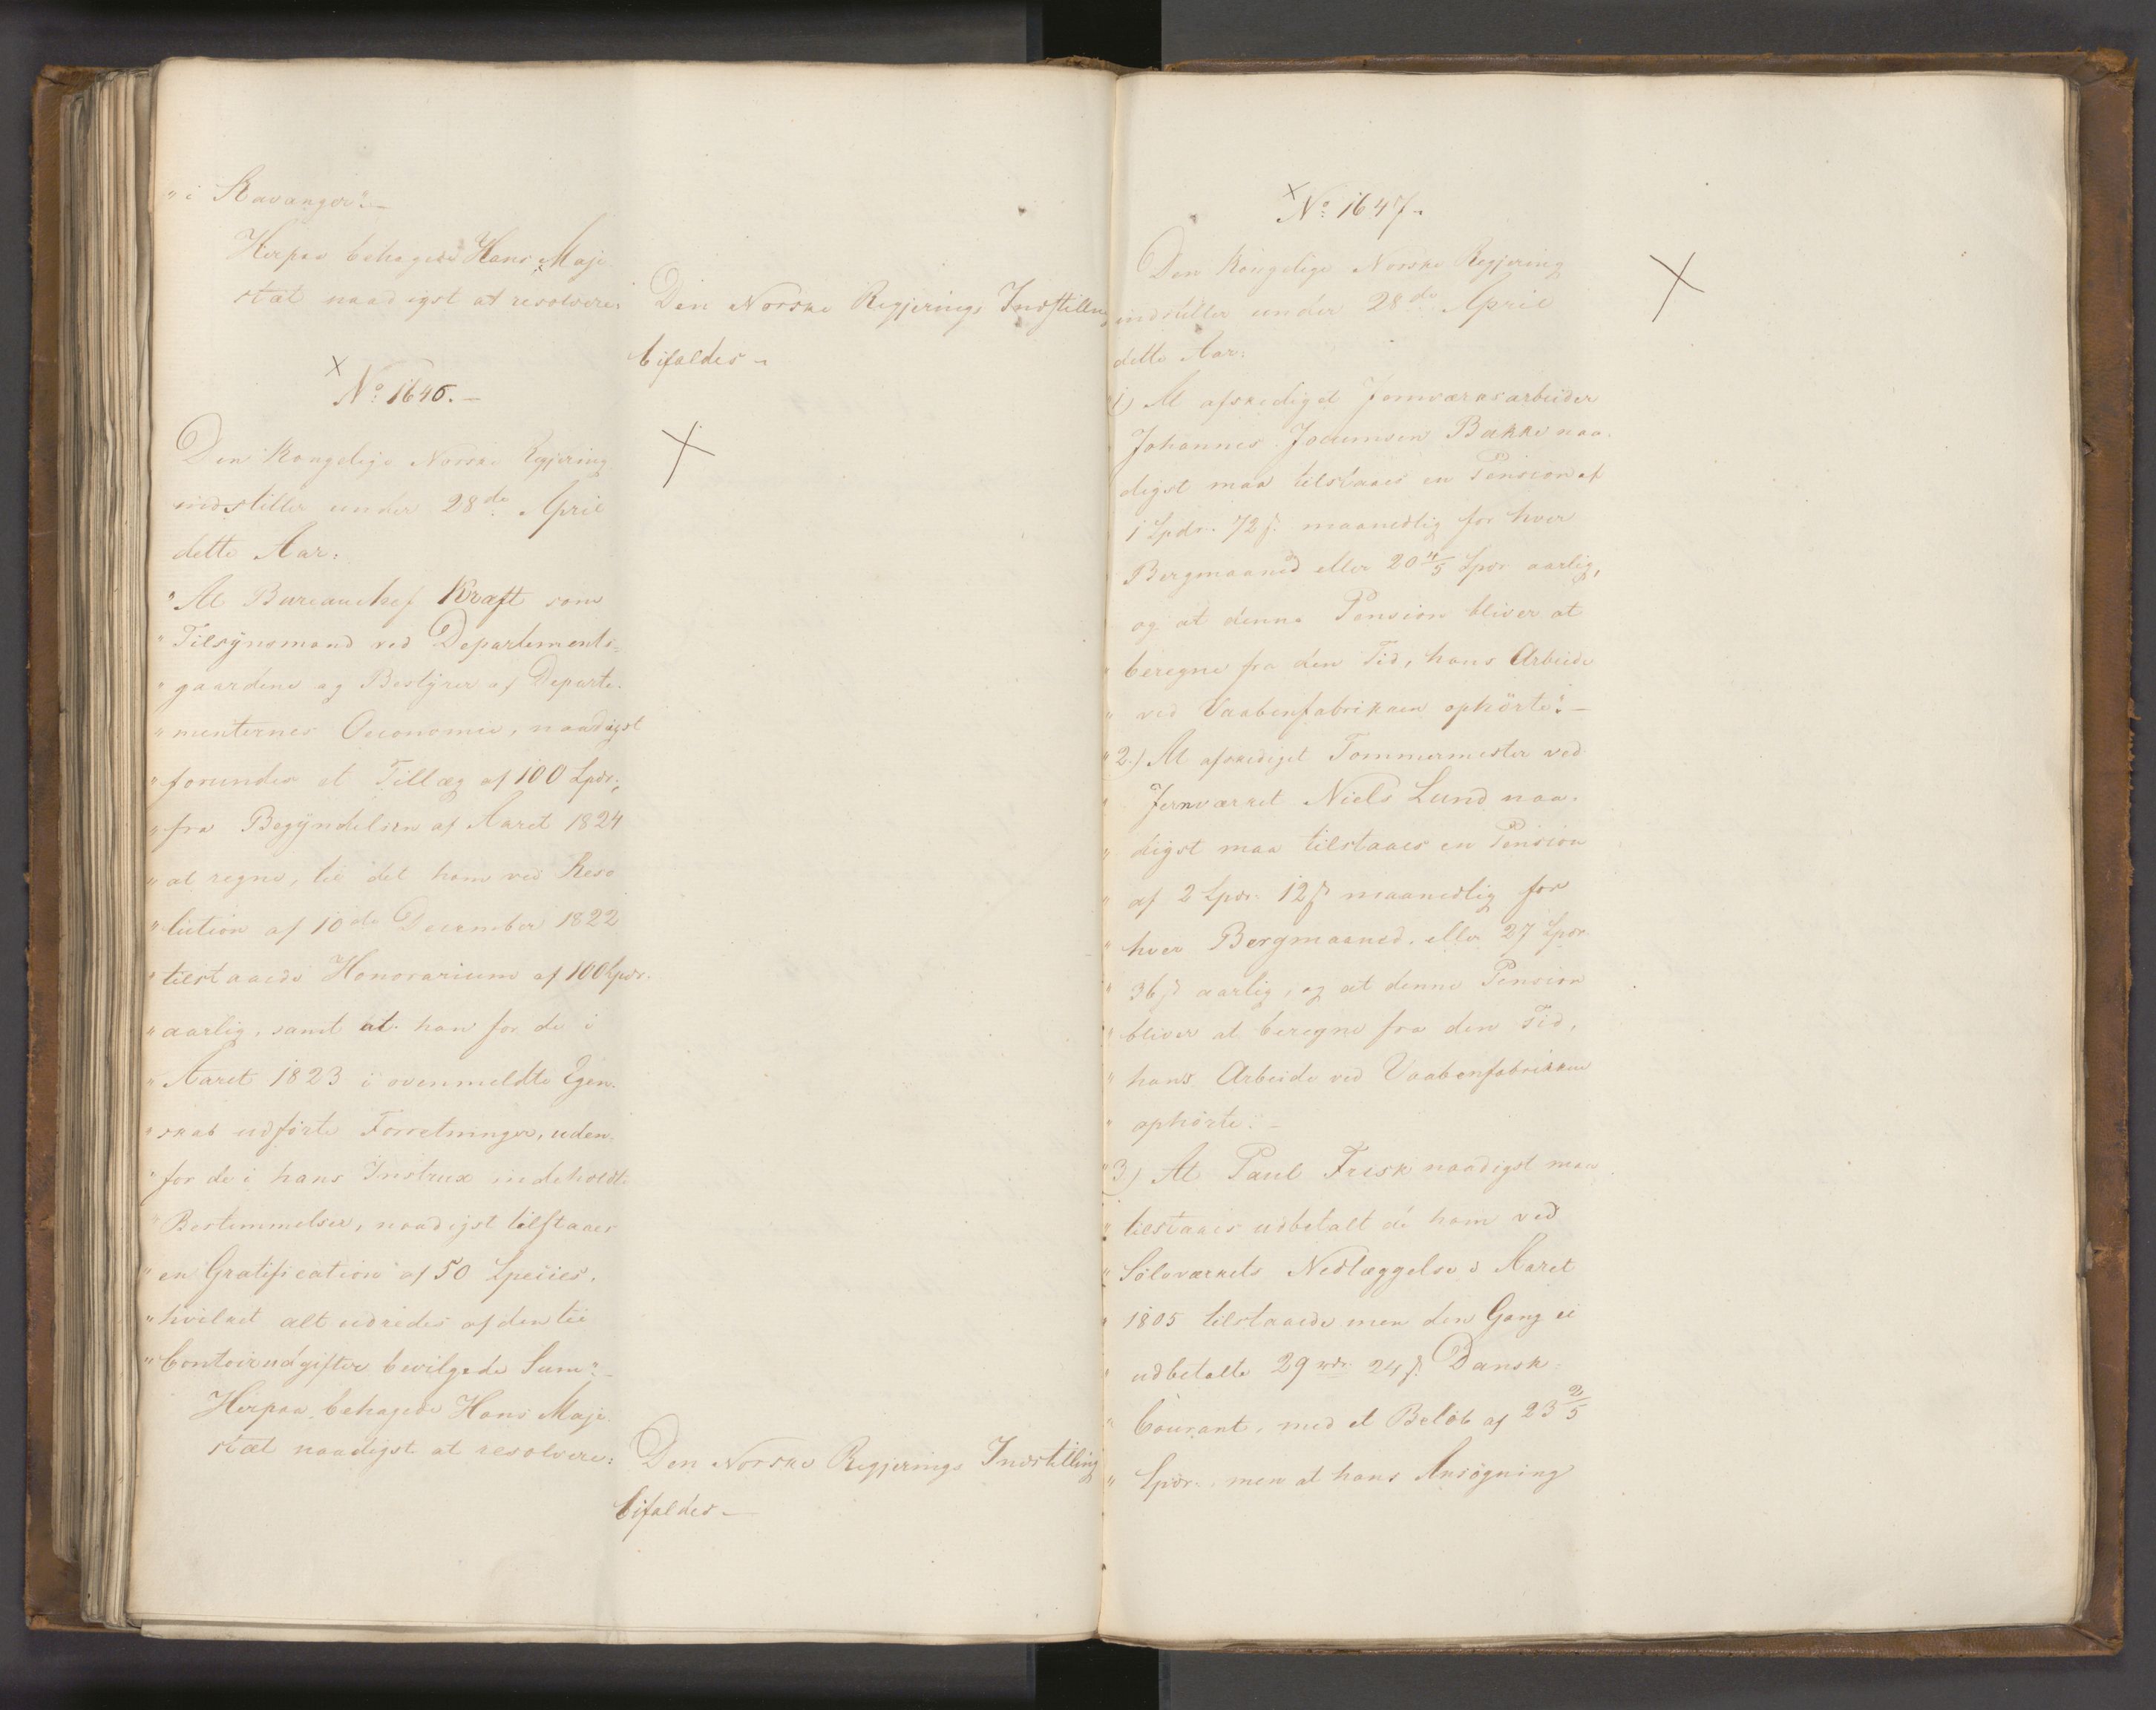 " i Stavanger".-
Herpaa behagede Hans Maje-
stæt naadigst at resolvere:
Den Norske Regjerings Indstilling
bifaldes -
No 1646.-
Den Kongelige Norske Regjering
indstiller under 28de April
dette Aar:
" At Bureauchef Kraft som
" Tilsynsmand ved Departements-
" gaardene og Bestyrer af Departe-
" menternes Oeconomie, naadigst
" forundes et Tillæg af 100 Spdr.,
" fra Begyndelsen af Aaret 1824
" at regne, til det ham ved Reso
" lution af 10de December 1822
" tilstaaede Honorarium af 100 Spdr.
" aarlig, samt at han for de i
" Aaret 1823 i ovenmeldte Egen-
" skab udførte Forretninger, uden-
" for de i hans Instrux indeholdte
" Bestemmelser, naadigst tilstaaes
" en Gratification af 50 Species,
" hvilket alt udredes af den til
" Contoirudgifter bevilgede Sum".-
Herpaa behagede Hans Maje-
stæt naadigst at resolvere:
Den Norske Regjerings Indstilling
bifaldes -
No 1647.
Den Kongelige Norske Regjering
indstiller under 28de April
dette Aar:
" 1) At afskediget Jernværksarbeider
Johannes Joeumsen Bakke naa-
digst maa tilstaaes en Pension af
1 Spdr. 72 ß. maanedlig for hver
Bergmaaned eller 20 4/5 Spdr aarlig,
og at denne Pension bliver at
" beregne fra den Tid, hans Arbeide
" ved Vaabenfabrikken ophörte:-
" 2.) At afskediget Tømmermester ved
" Jernværket Niels Lund naa-
" digst maa tilstaaes en Pension
" af 2 Spdr. 12 ß maanedlig for
" hver Bergmaaned, eller 27 Spdr
" 36 ß aarlig, og at denne Pension
" bliver at beregne fra den Tid,
" hans Arbeide ved Vaabenfabrikken
" ophörte.-
" 3.) At Paul Frisk naadigst maa
" tilstaaes udbetalt de ham ved
" Sölvværkets Nedlæggelse i Aaret
" 1805 tilstaaede men den Gang ei
" udbetalte 29 rdr. 24 ß. Dansk-
" Courant, med et Belöb af 23 2/5
" Spdr., men at hans Ansögning